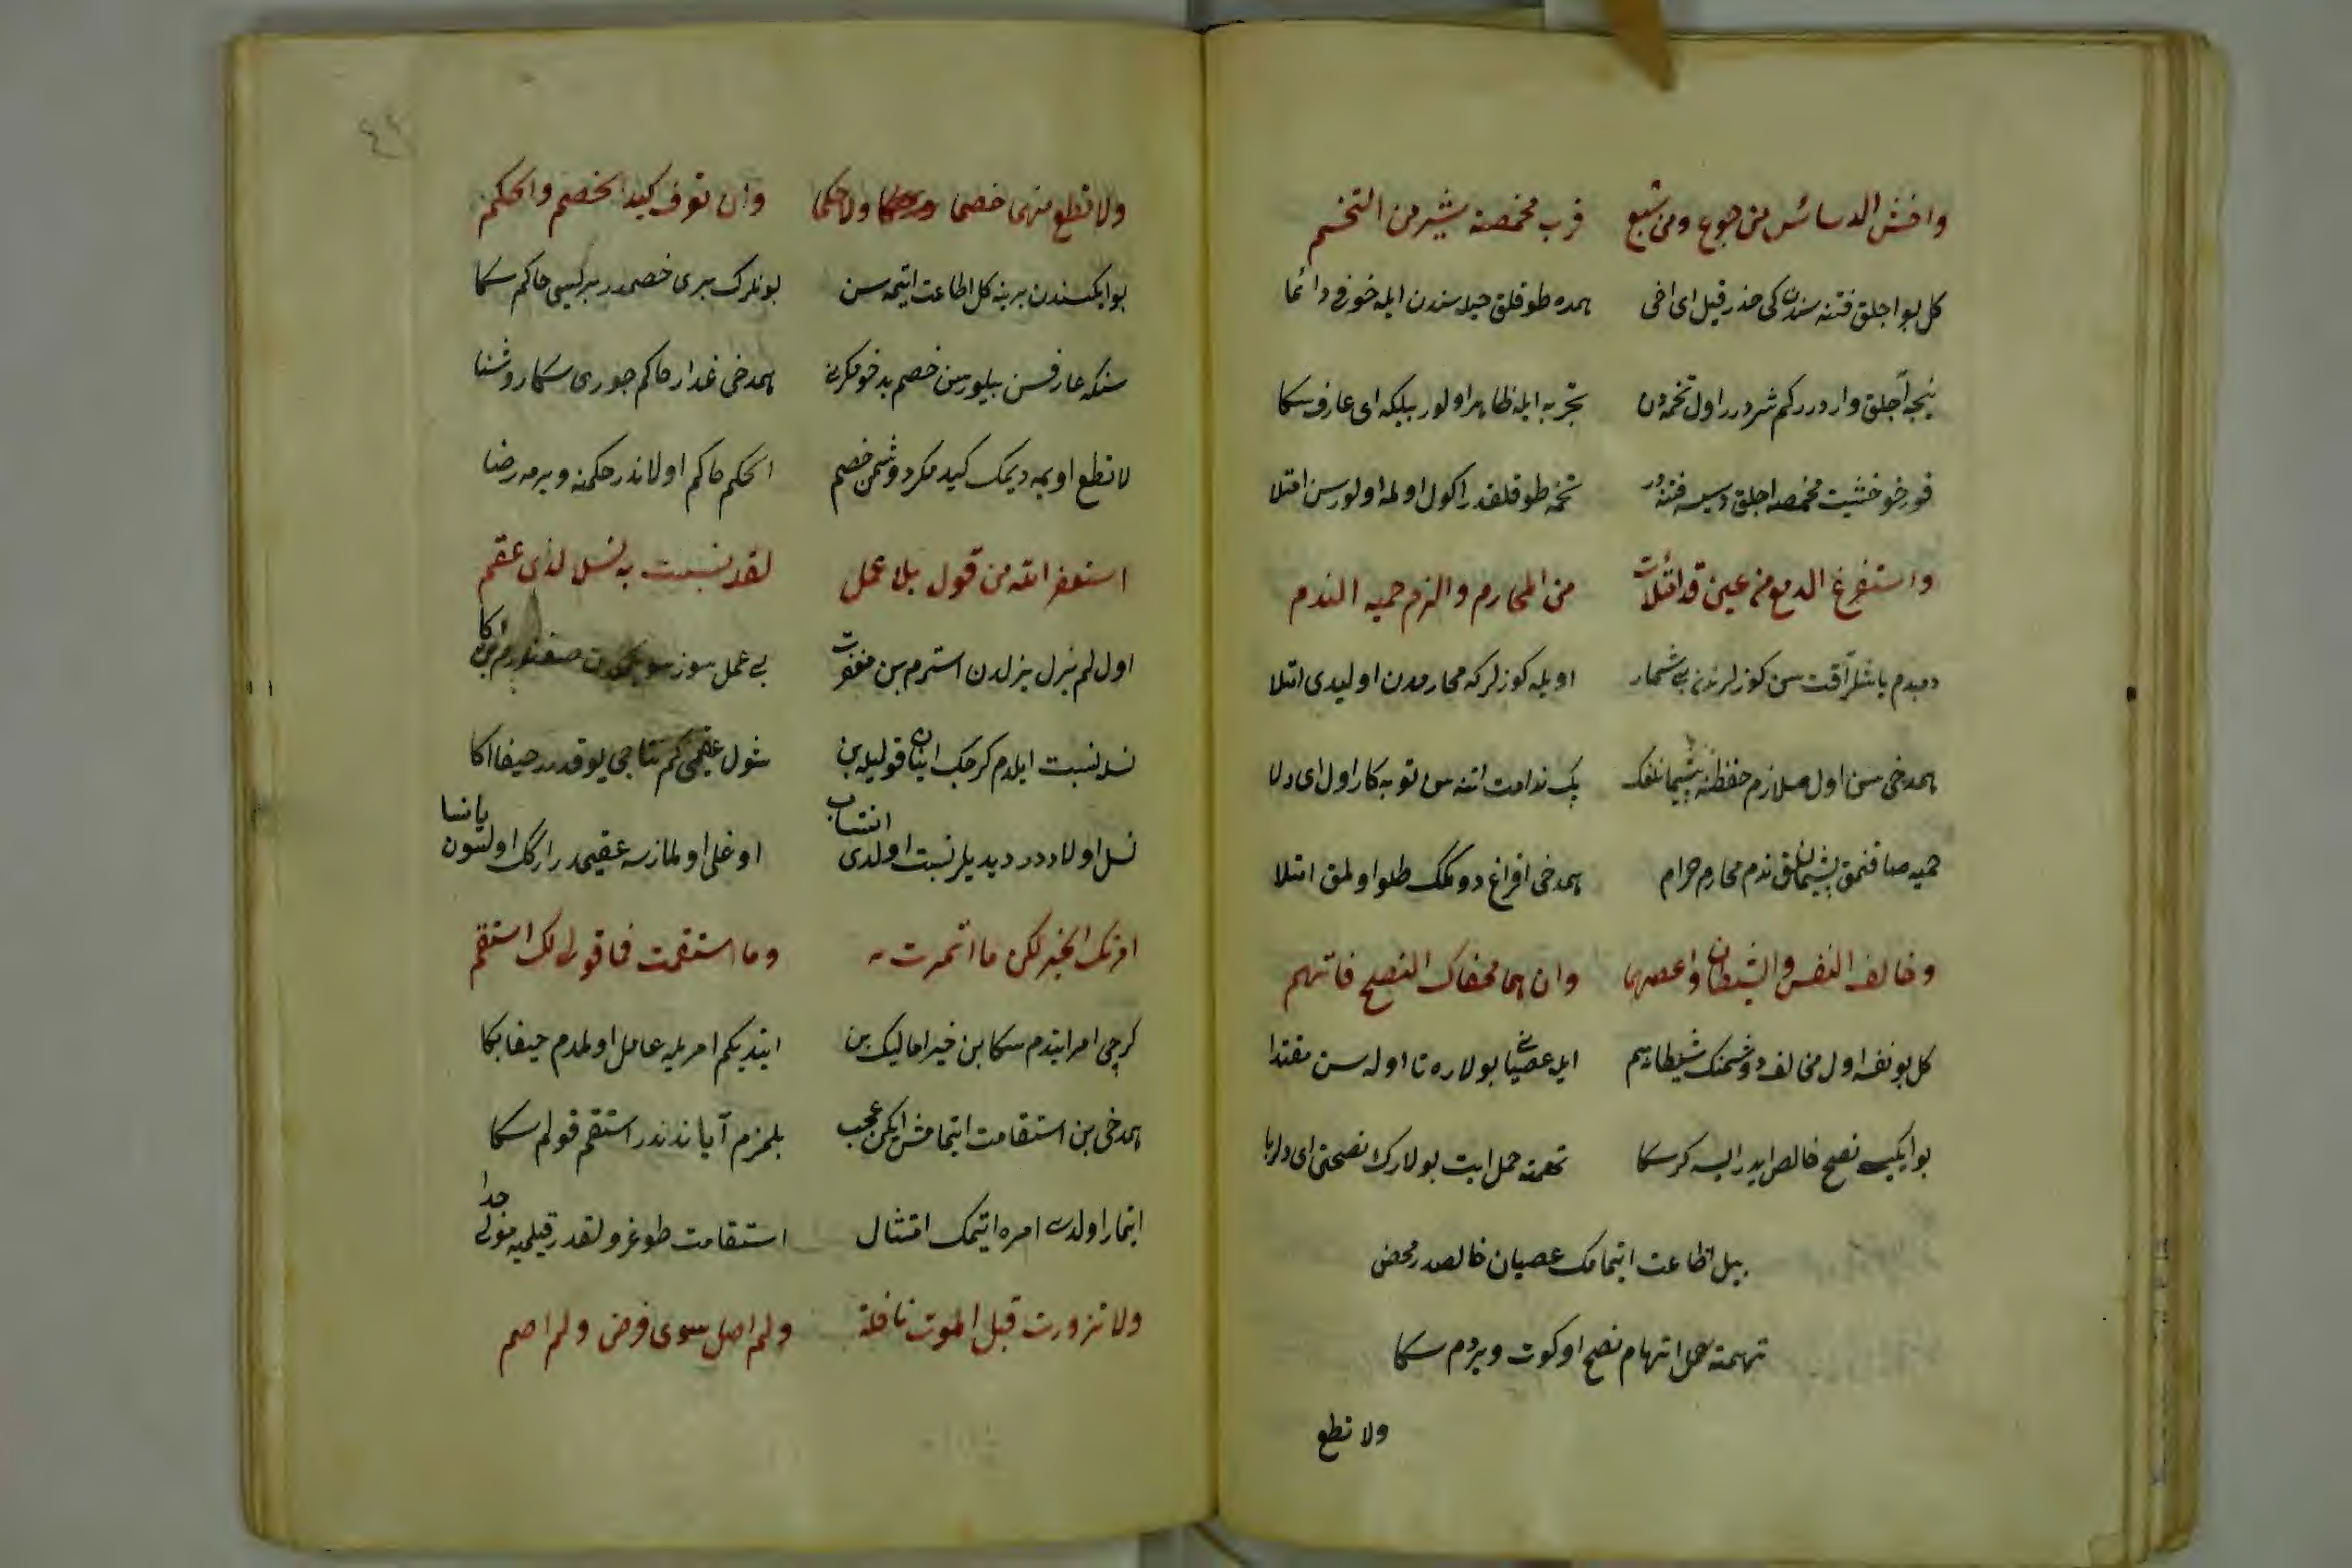 واخش الدسائس من جوع ومن شبع فرب مخمصة شر من التخم
كل بو اجلق فتنه سندن كی حذر قیل ای اخی همده طوقلق حیله سندن ایله خوفی دائما
نیجه آجلق واردرر كم شردرر اول تخمه دن تجربه ایله ظاهر اولور بیلكه ای عارف سكا
قورخو خشیت مخمصه اجلق دسیسه فتنه در تخمه طوقلقدر اكول اولمه اولورسن امتلا
واستفرغ الدمع من عین قد امتلأت من المحارم والزم حمیة الندم
دمبدم یاشلر آقت سن كوزلرندن بی شمار اویله كوزلر كه محارمدن اولیدی امتلا
همدخی سن اول ملازم حفظنه پشیمانلغك یك ندامت اتنه سن توبه كار اول ای دلا
حمیه صاقنمق پشیمانلق ندم محارم حرام همدخی افراغ دوكمك طلو اولمق امتلا
وخالف النفس والشیطان واعصهما وان هما محضاك النصح فاتهم
كل بو نفسه اول مخالف دوشمنك شیطانه هم ایله عصیان بولاره تا اوله سن مقتدا
بو ایكیسی نصح خالص ایدرلیسه كر سكا تهمته حمل ایت بولارك نصحتی ای دلربا
بیل اطاعت ایتمامك عصیان خالصدر محض
تهمته حمل اتهام نصح اوكوت ویردم سكا
ولا تطع
٤٢
ولا تطع منهما خصما ولا حكما وان تعرف كید الخصم والحكم
بو ایكسندن برینه كل اطاعت ایتمه سن بونلرك بری خصمدر بریسی حاكم سكا
سنكه عارفسن بیلورسن خصم بدخو مكرنی همدخی غدار حاكم جوری سكا روشنا
لا تطع اویمه دیمك كید مكر دوشمن خصم الحكم حاكم اولاندر حكمنه ویرمه رضا
استغفر الله من قول بلا عمل لقد نسبت به نسلا لذی عقم
اول لم یزل یزلدن استرم بن مغفرت بی عمل سوز سویلمكدن صغنورم بن اكا
نسله نسبت ایلدم كرجك انیان قولیله بن شول عقیمی كم نتاجی یوقدرر حیفا اكا
نسل اولاددر دیدیلر نسبت اولدی انتساب اوغلی اولمازسه عقیمدر ارلك اولسون یا نسا
امرتك الخیر لكن ما ائتمرت به وما استقمت فما قولی لك استقم
كرچی امر ایتدم سكا بن خیر اما لیك بن ایتدیكم امریله عامل اولمدم حیفا بكا
همدخی بن استقامت ایتمامش ایكن عجب بلمزم آیا ندندر استقم قولم سكا
ایتمار اولدی امره ایتمك امتثال استقامت طوغرولقدر قیلمیه مولی جدا
ولا تزودت قبل الموت نافلة ولم اصل سوی فرض ولم اصم